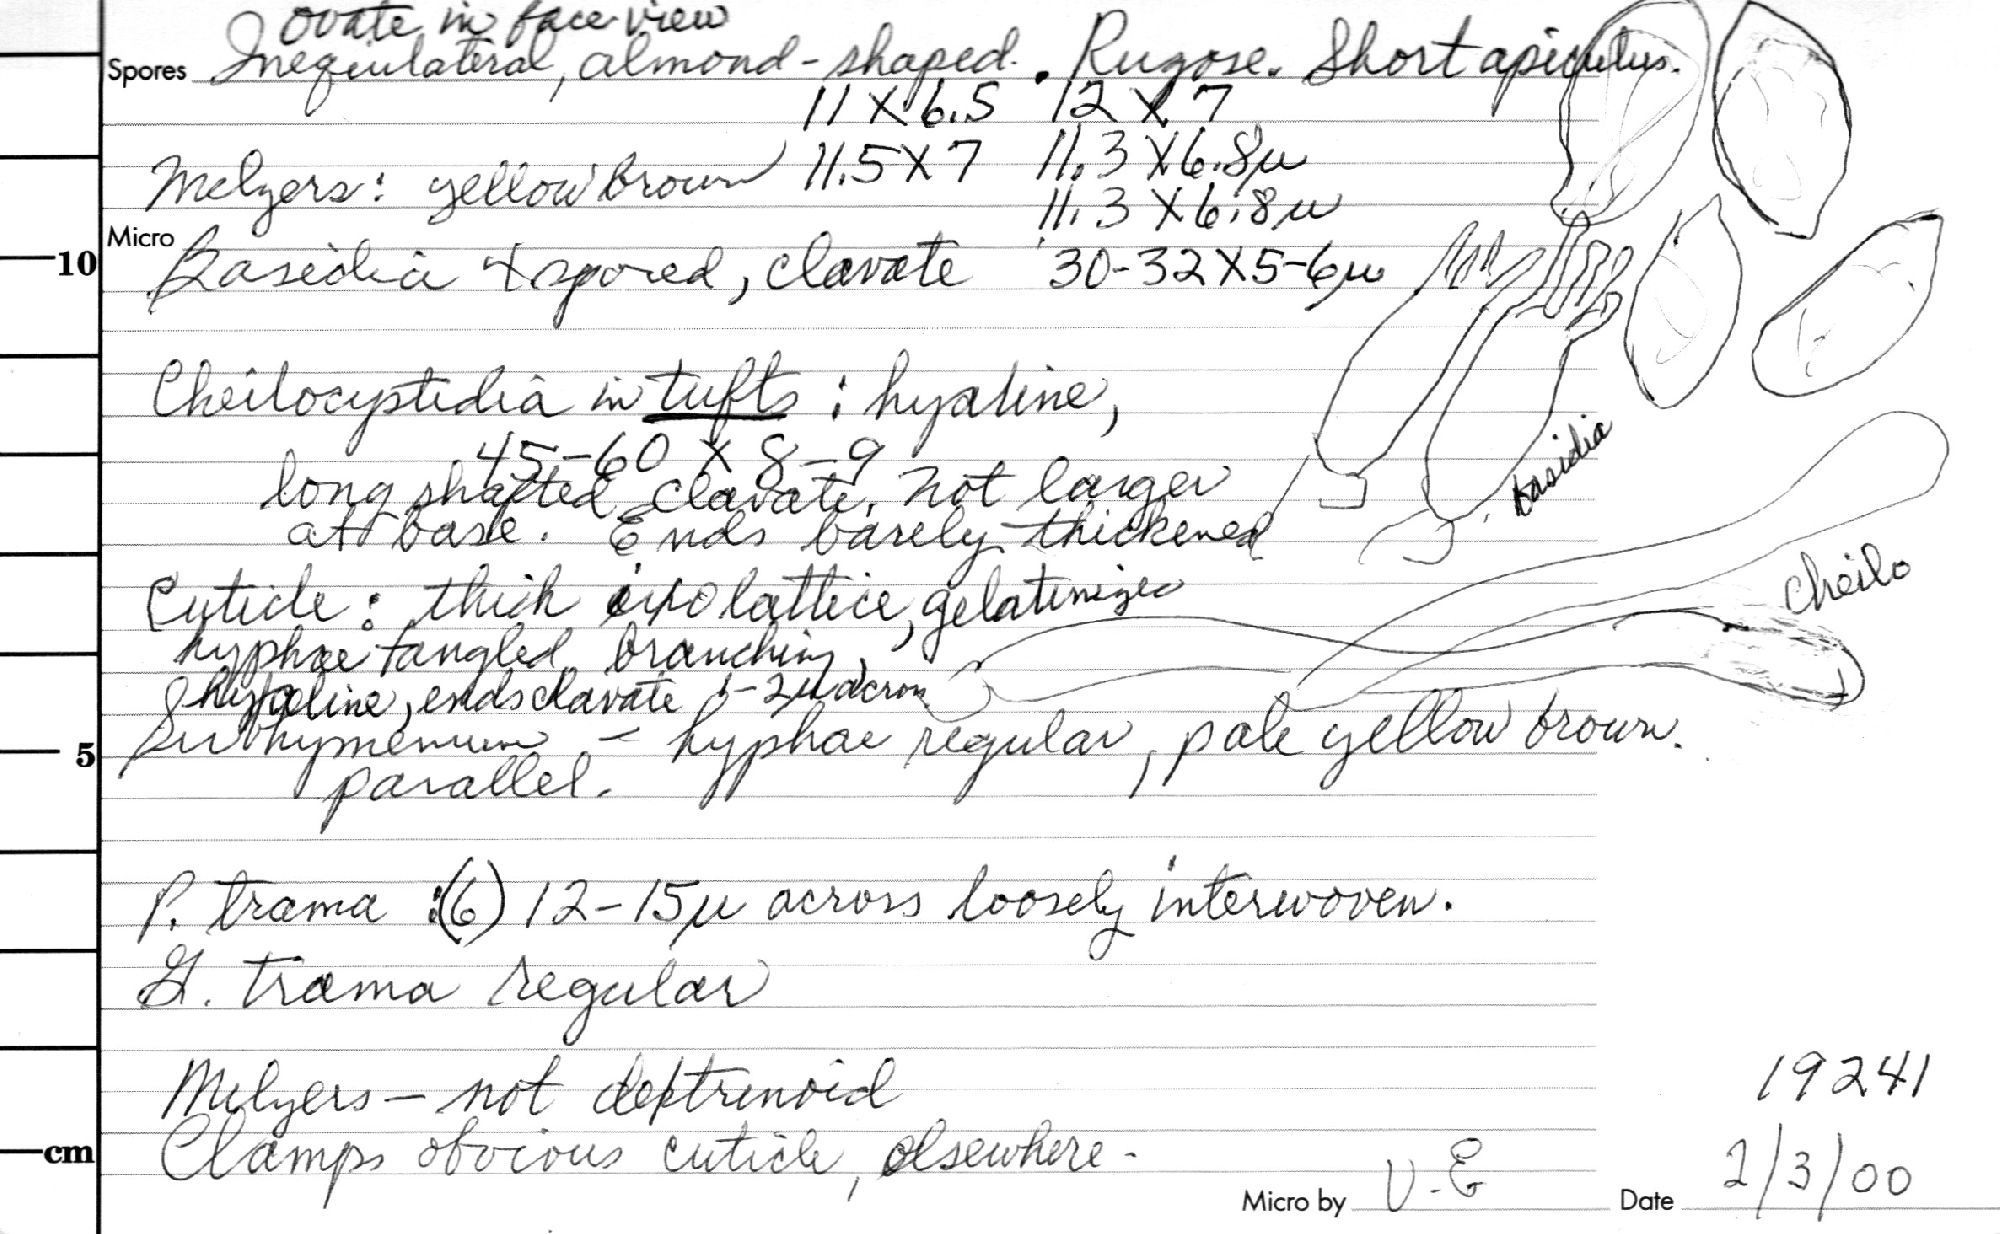 ovate in face view
Spores Inequilateral, almond-shaped. Rugose. Short apiculus.
11 X 6.5 12 X 7
Melzers: yellow brown 11.5 X 7 11.3 X 6.8µ
11.3 X 6.8µ
Micro
10
Basidia 4 spored, clavate 30-32 X 5-6µ
Cheilocystidia in tufts: hyaline,
45-60 X 8-9
long shafted clavate, not larger
at base. Ends barely thickened
basidia
cheilo
Cuticle: thick ixolattice, gelatinized
hyphae tangled, branching,
hyaline, ends clavate
Subhymenium - hyphae regular, pale yellow brown.
5
parallel.
P. trama :(6) 12-15µ across loosely interwoven.
G. trama regular
Melzers - not deptrenoid
19241
Clamps obvious cuticle, elsewhere.
cm
Micro by V.E Date 2/3/00